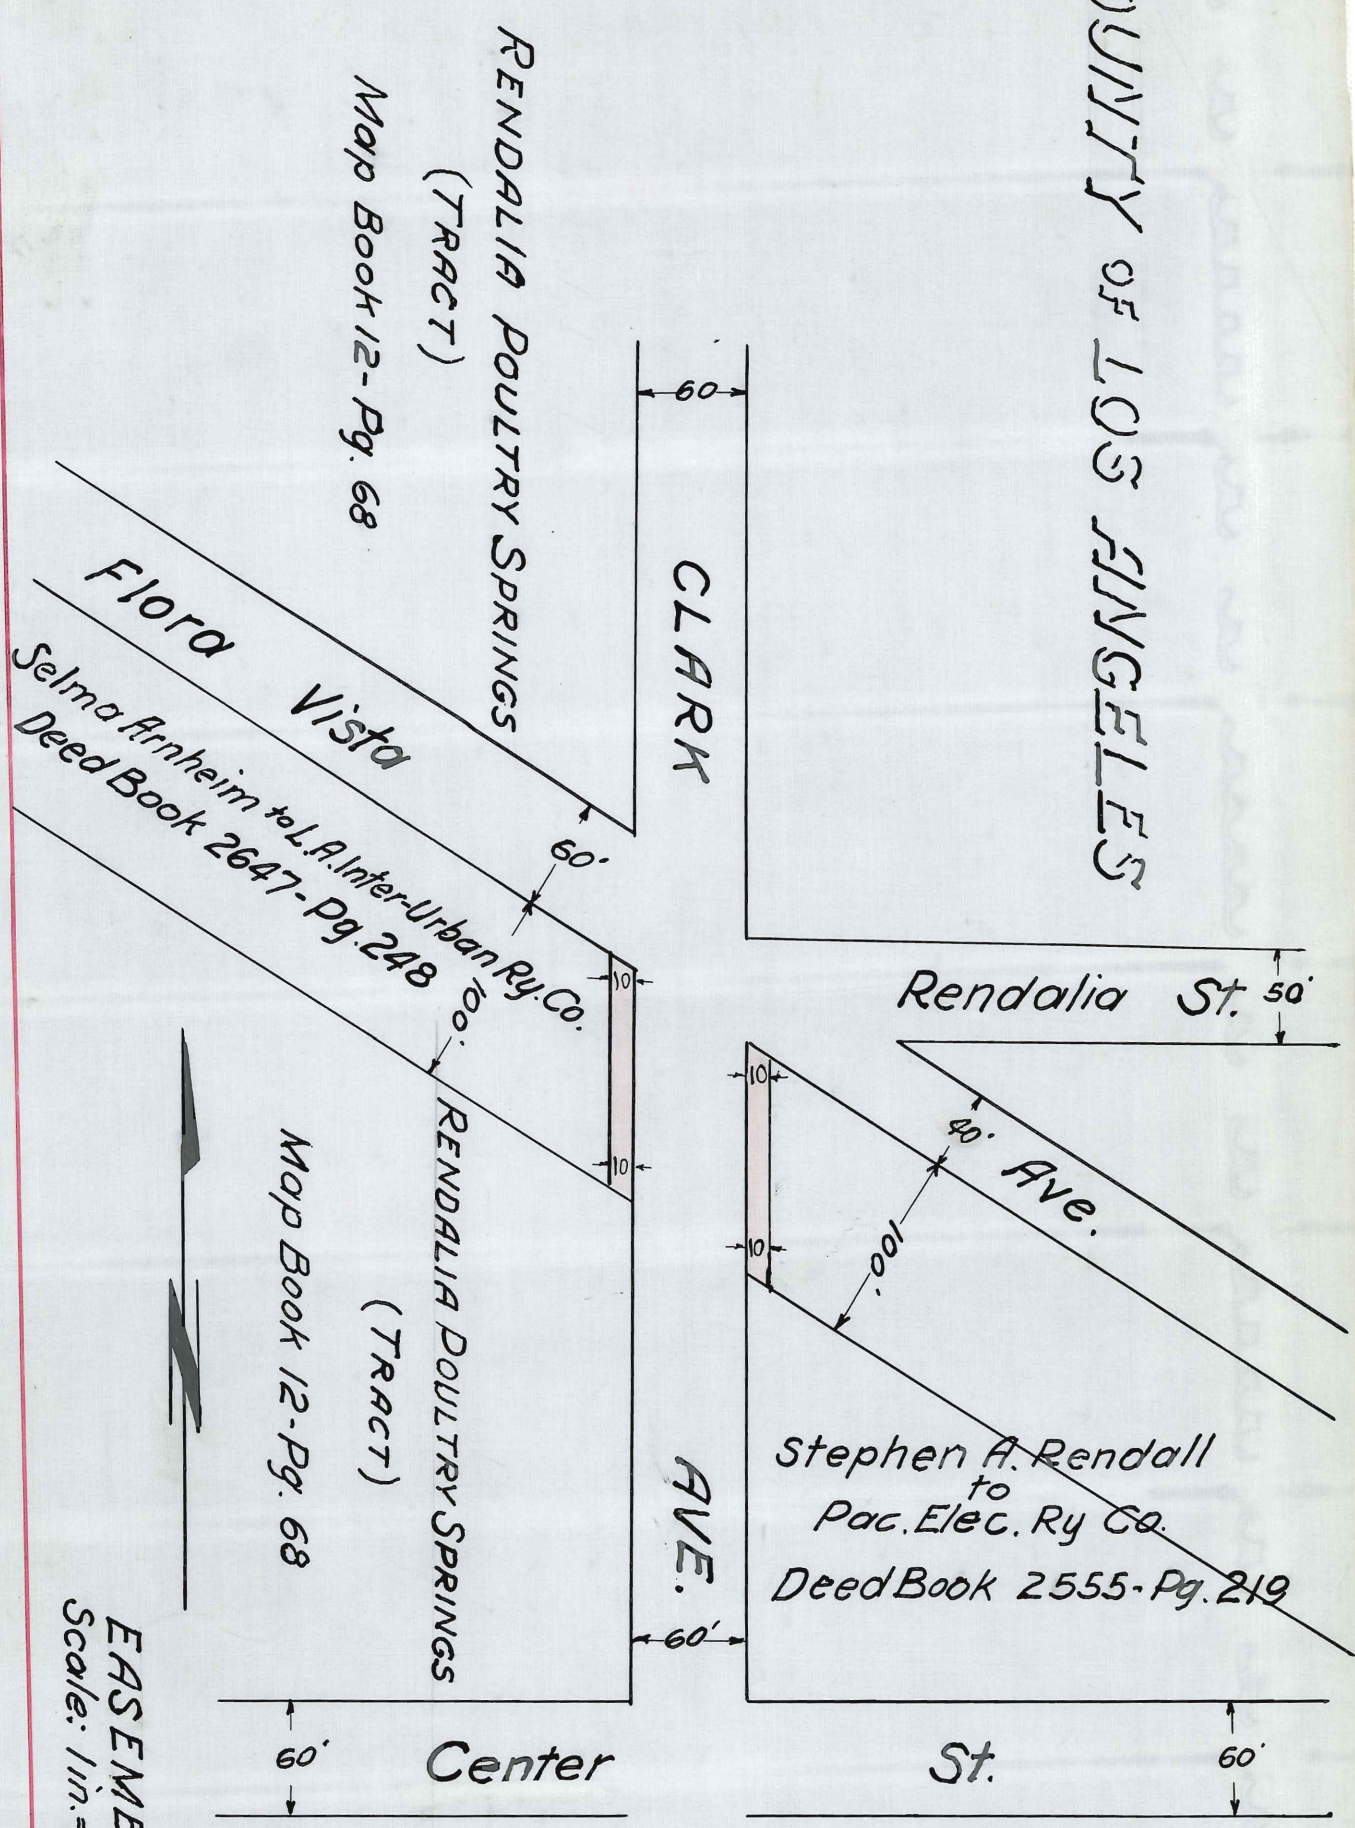 OUNTY OF LOS ANGELES
RENDALIA POULTRY SPRINGS
(TRACT)
Map Book 12-Pg. 68
60
CLARK
Flora Vista
Selma Arnheim to L.A. Inter-Urban Ry. Co.
Deed Book 2647-Pg. 248
60'
100'
10
10
Rendalia St. 50'
10
10
40'
Ave.
100'
RENDALIA POULTRY SPRINGS
(TRACT)
Map Book 12-Pg. 68
Stephen A. Rendall
to
Pac. Elec. Ry Co.
Deed Book 2555-Pg. 219
AVE.
60'
60'
Center St.
60'
EASEME
Scale: 1in.=